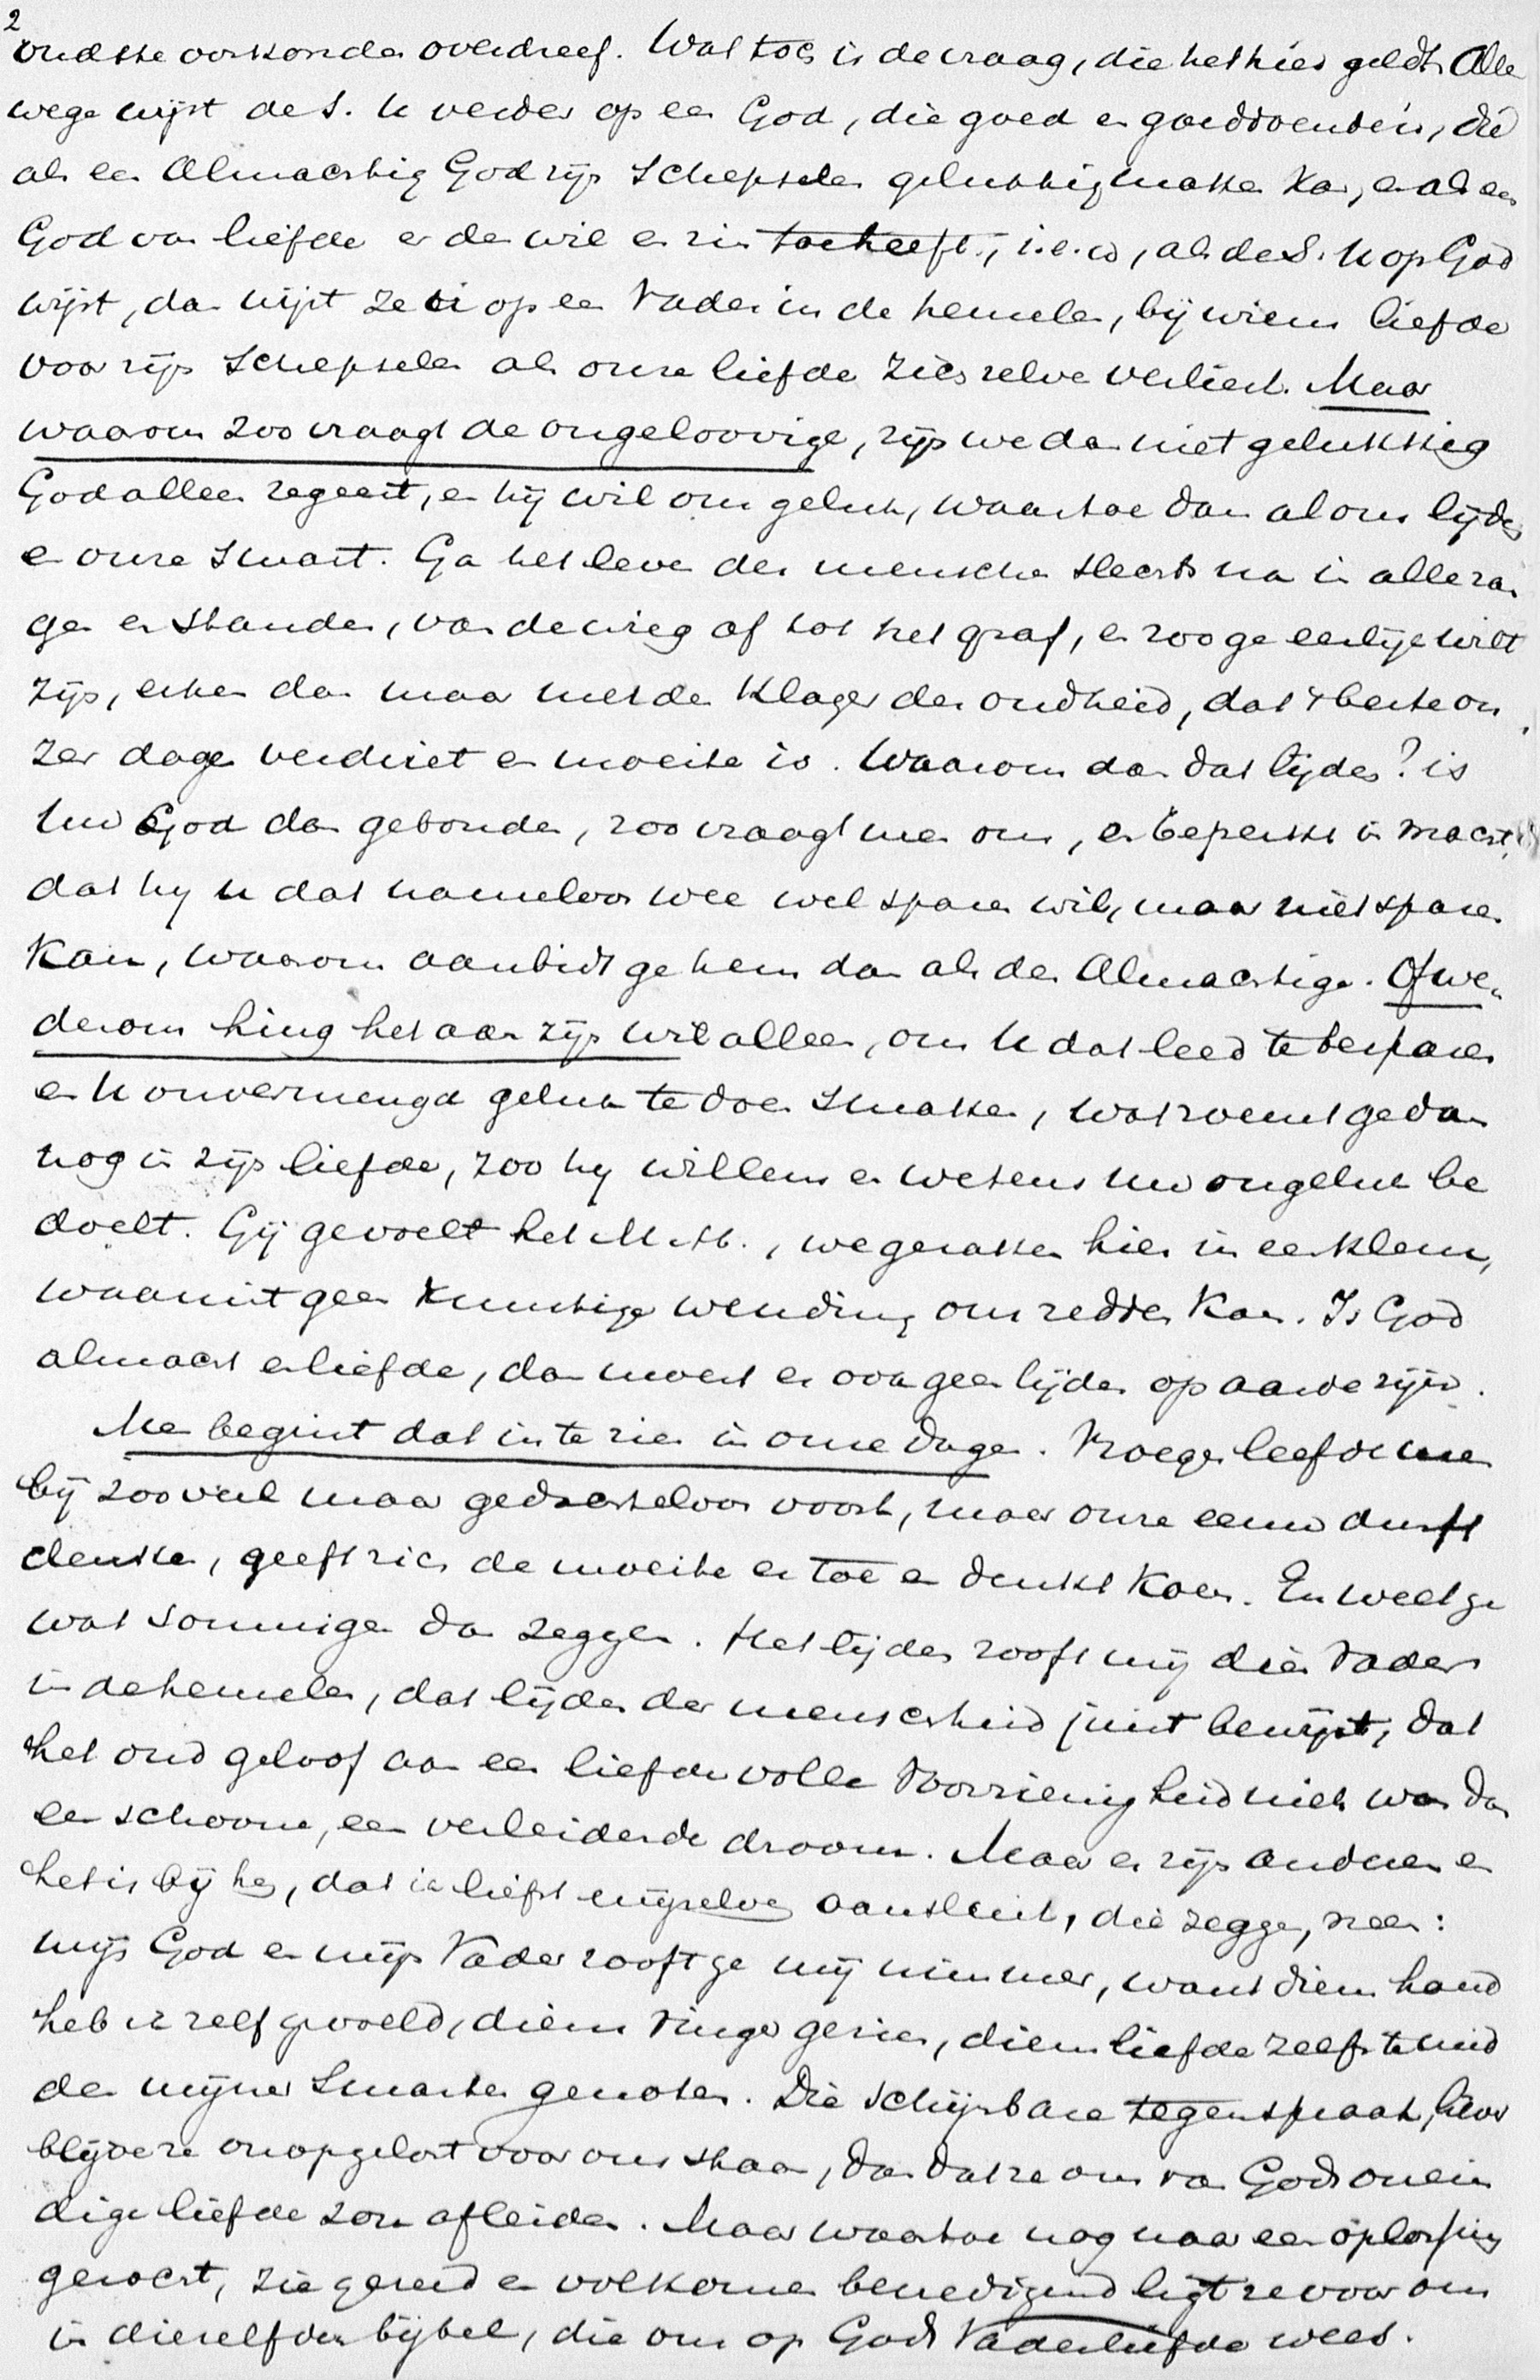 2
oudste oorkonden overdreef. Wat toch is de vraag, die het hier geldt. Alle
wege wijst de S. U verder op een God, die goed en goeddoende is, die
als een Almachtig God zijn schepselen gelukkig maken kan, en als een
God van liefde er den wil en zin toe heeft, i.e.w, als de S. U op God
wijst, dan wijst ze U op een Vader in de hemelen, bij wiens liefde
voor zijn schepselen al onze liefde zich zelve verliest. Maar
waarom zoo vraagt de ongeloovige, zijn we dan niet gelukkig
God alleen regeert, en hij wil ons geluk, waartoe dan al ons lijden
en onze smart. Ga het leven der menschen slechts na in alle ran
gen en standen, van de wieg af tot het graf, en zoo ge eerlijk wilt
zijn, erken dan maar met den klager der oudheid, dat 't beste on
zer dagen verdriet en moeite is. Waarom dan dat lijden? is
Uw God dan gebonden, zoo vraagt men ons, en beperkt in macht,
dat hij U dat nameloos wee wel sparen wil, maar niet sparen
kan, waarom aanbidt ge hem dan als den Almachtige. Of we,
derom hing het aan zijn wil alleen, om U dat leed te besparen
en U onvermengd geluk te doen smaken, wat roemt ge dan
nog in zijn liefde, zoo hij willens en wetens Uw ongeluk be
doelt. Gij gevoelt het M. H., we geraken hier in een klem,
waaruit geen kunstige wending ons redden kan. Is God
almacht en liefde, dan moest er ook geen lijden op aarde zijn.
Men begint dat in te zien in onze dagen. Vroeger leefde men
bij zooveel maar gedachteloos voort, maar onze eeuw durft
denken, geeft zich de moeite er toe en denkt koen. En weet ge
wat sommigen dan zeggen. Het lijden rooft mij dien Vader
in de hemelen, dat lijden der menschheid juist bewijst, dat
het oud geloof aan een liefdevolle Voorzienigheid niets was dan
een schoone, een verleidende droom. Maar er zijn anderen en
het is bij hen, dat ik liefst mijzelven aansluit, die zeggen, neen:
mijn God en mijn Vader rooft ge mij nimmer, want diens hand
heb ik zelf gevoeld, diens vinger gezien, diens liefde zelfs te mid
den mijner smarten genoten. Die schijnbare tegenspraak, liever
blijve ze onopgelost voor ons staan, dan dat ze ons van Gods onein
dige liefde zou afleiden. Maar waartoe nog naar een oplossing
gezocht, zie gereed en volkomen bevredigend ligt ze voor ons
in dienzelfden bijbel, die ons op Gods Vaderliefde wees.